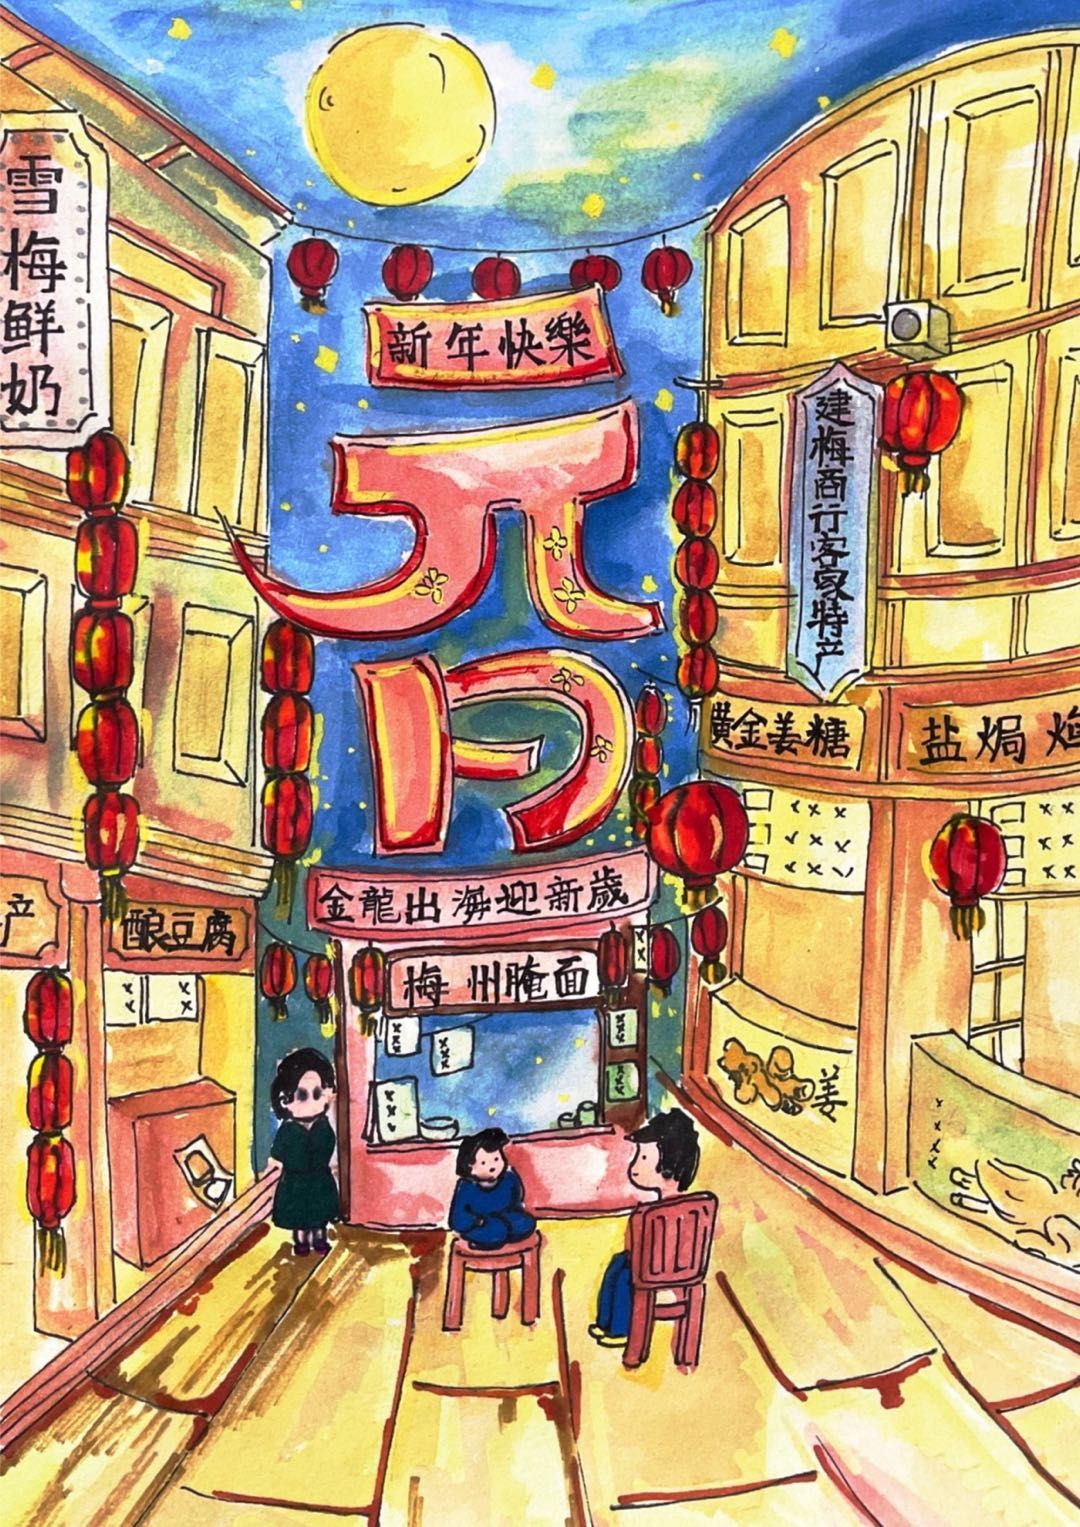 雪梅鲜奶
新年快樂
元
建梅商行客家特产
黄金姜糖
盐焗
金龍出海迎新歲
产
酿豆腐
梅州腌面
姜